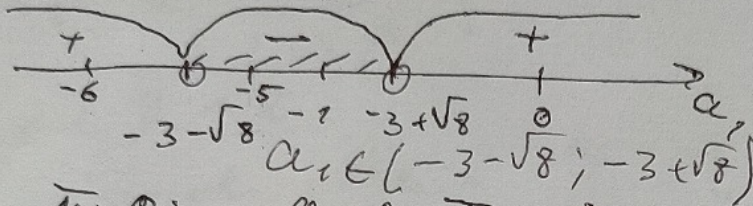 + − +
-6 -5 -1 0 a₁
-3-√8 -3+√8
a₁ ∈ (-3-√8; -3+√8)